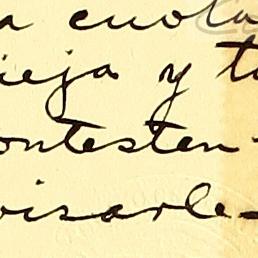 a cuota
ieja y t
ontesten-
visarle-